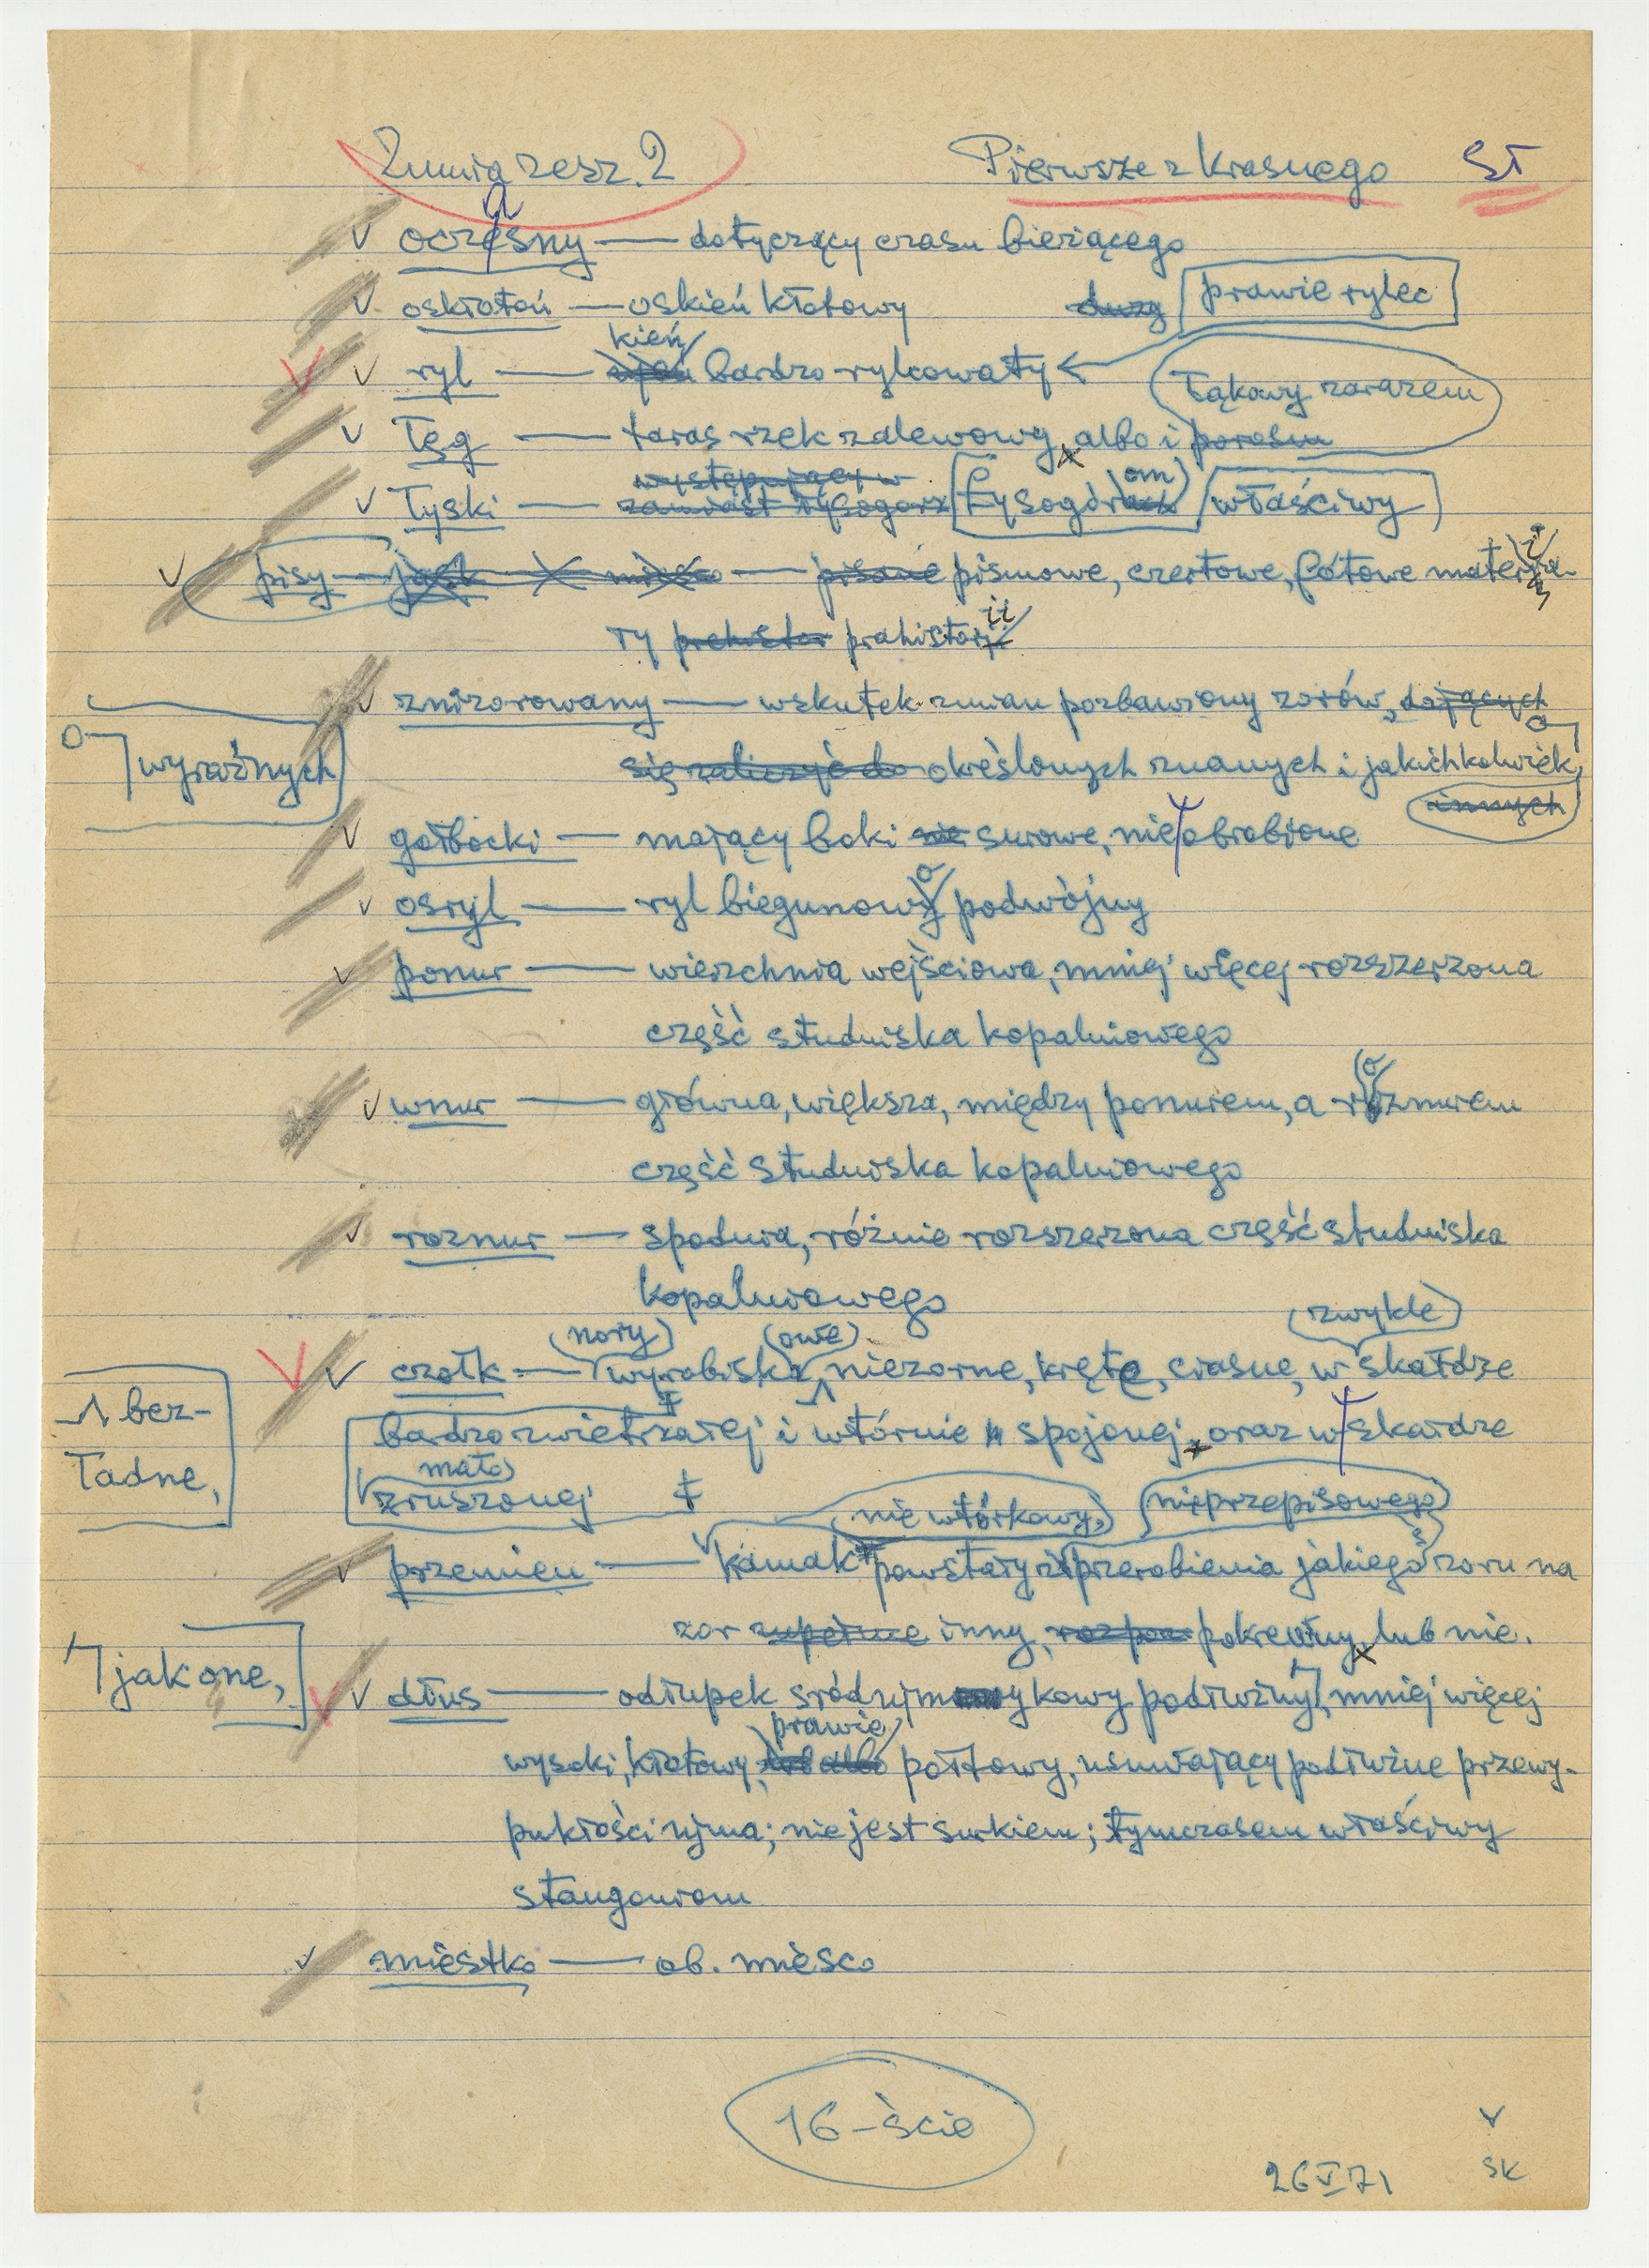 Zumią zesz. 2 Pierwsze z Krasnego SŁ
a
oczęsny — dotyczący czasu bieżącego
oskłotoń — oskień kłotowy duży prawie rylec
kień
ryl — bardzo rylcowaty
łąkowy zarazem
łęg — taras rzek zalewowy, albo i porosłu
występujący w om
łyski — zamiast łysogorz łysogórach właściwy
pisy — jask — miejsc — pisane pismowe, czertowe, fotowe materia- i
ły prehistor prahistorii
znizorowany — wskutek zmian pozbawiony zorów, dających
wyraźnych
się zaliczyć do określonych znanych i jakichkolwiek,
innych
gołbocki — mający boki nie surowe, nie obrobione
o
osryl — ryl biegunowy podwójny
ponur — wierzchnia wejściowa, mniej więcej rozszerzona
część studniska kopalniowego
o
wnur — główna, większa, między ponurem, a roznurem
część studniska kopalniowego
roznur — spodnia, różnie rozszerzona część studniska
kopalniowego
(nory) (owe) (zwykle)
czołk — wyrobiska, niezorne, kręte, ciasne, w skałdze
bez-
ładne,
bardzo zwietrzałej i wtórnie spojonej, oraz w skałdze
mało
zruszonej
nie wtórkowy, nieprzepisowego
przemien — kamak powstały z przerobienia jakiegoś zoru na
zor zupełnie inny, pokrewny lub nie.
jakone,
dłus — odłupek śródnjmykowy podłużny, mniej więcej
prawie
wysoki, kłotowy, lub albo połtowy, usuwający podłużne przewy-
pukłości njma; nie jest surkiem; tymczasem właściwy
stangoniom
mieśtko — ob. miesco
16-ście
26 V 71
SK